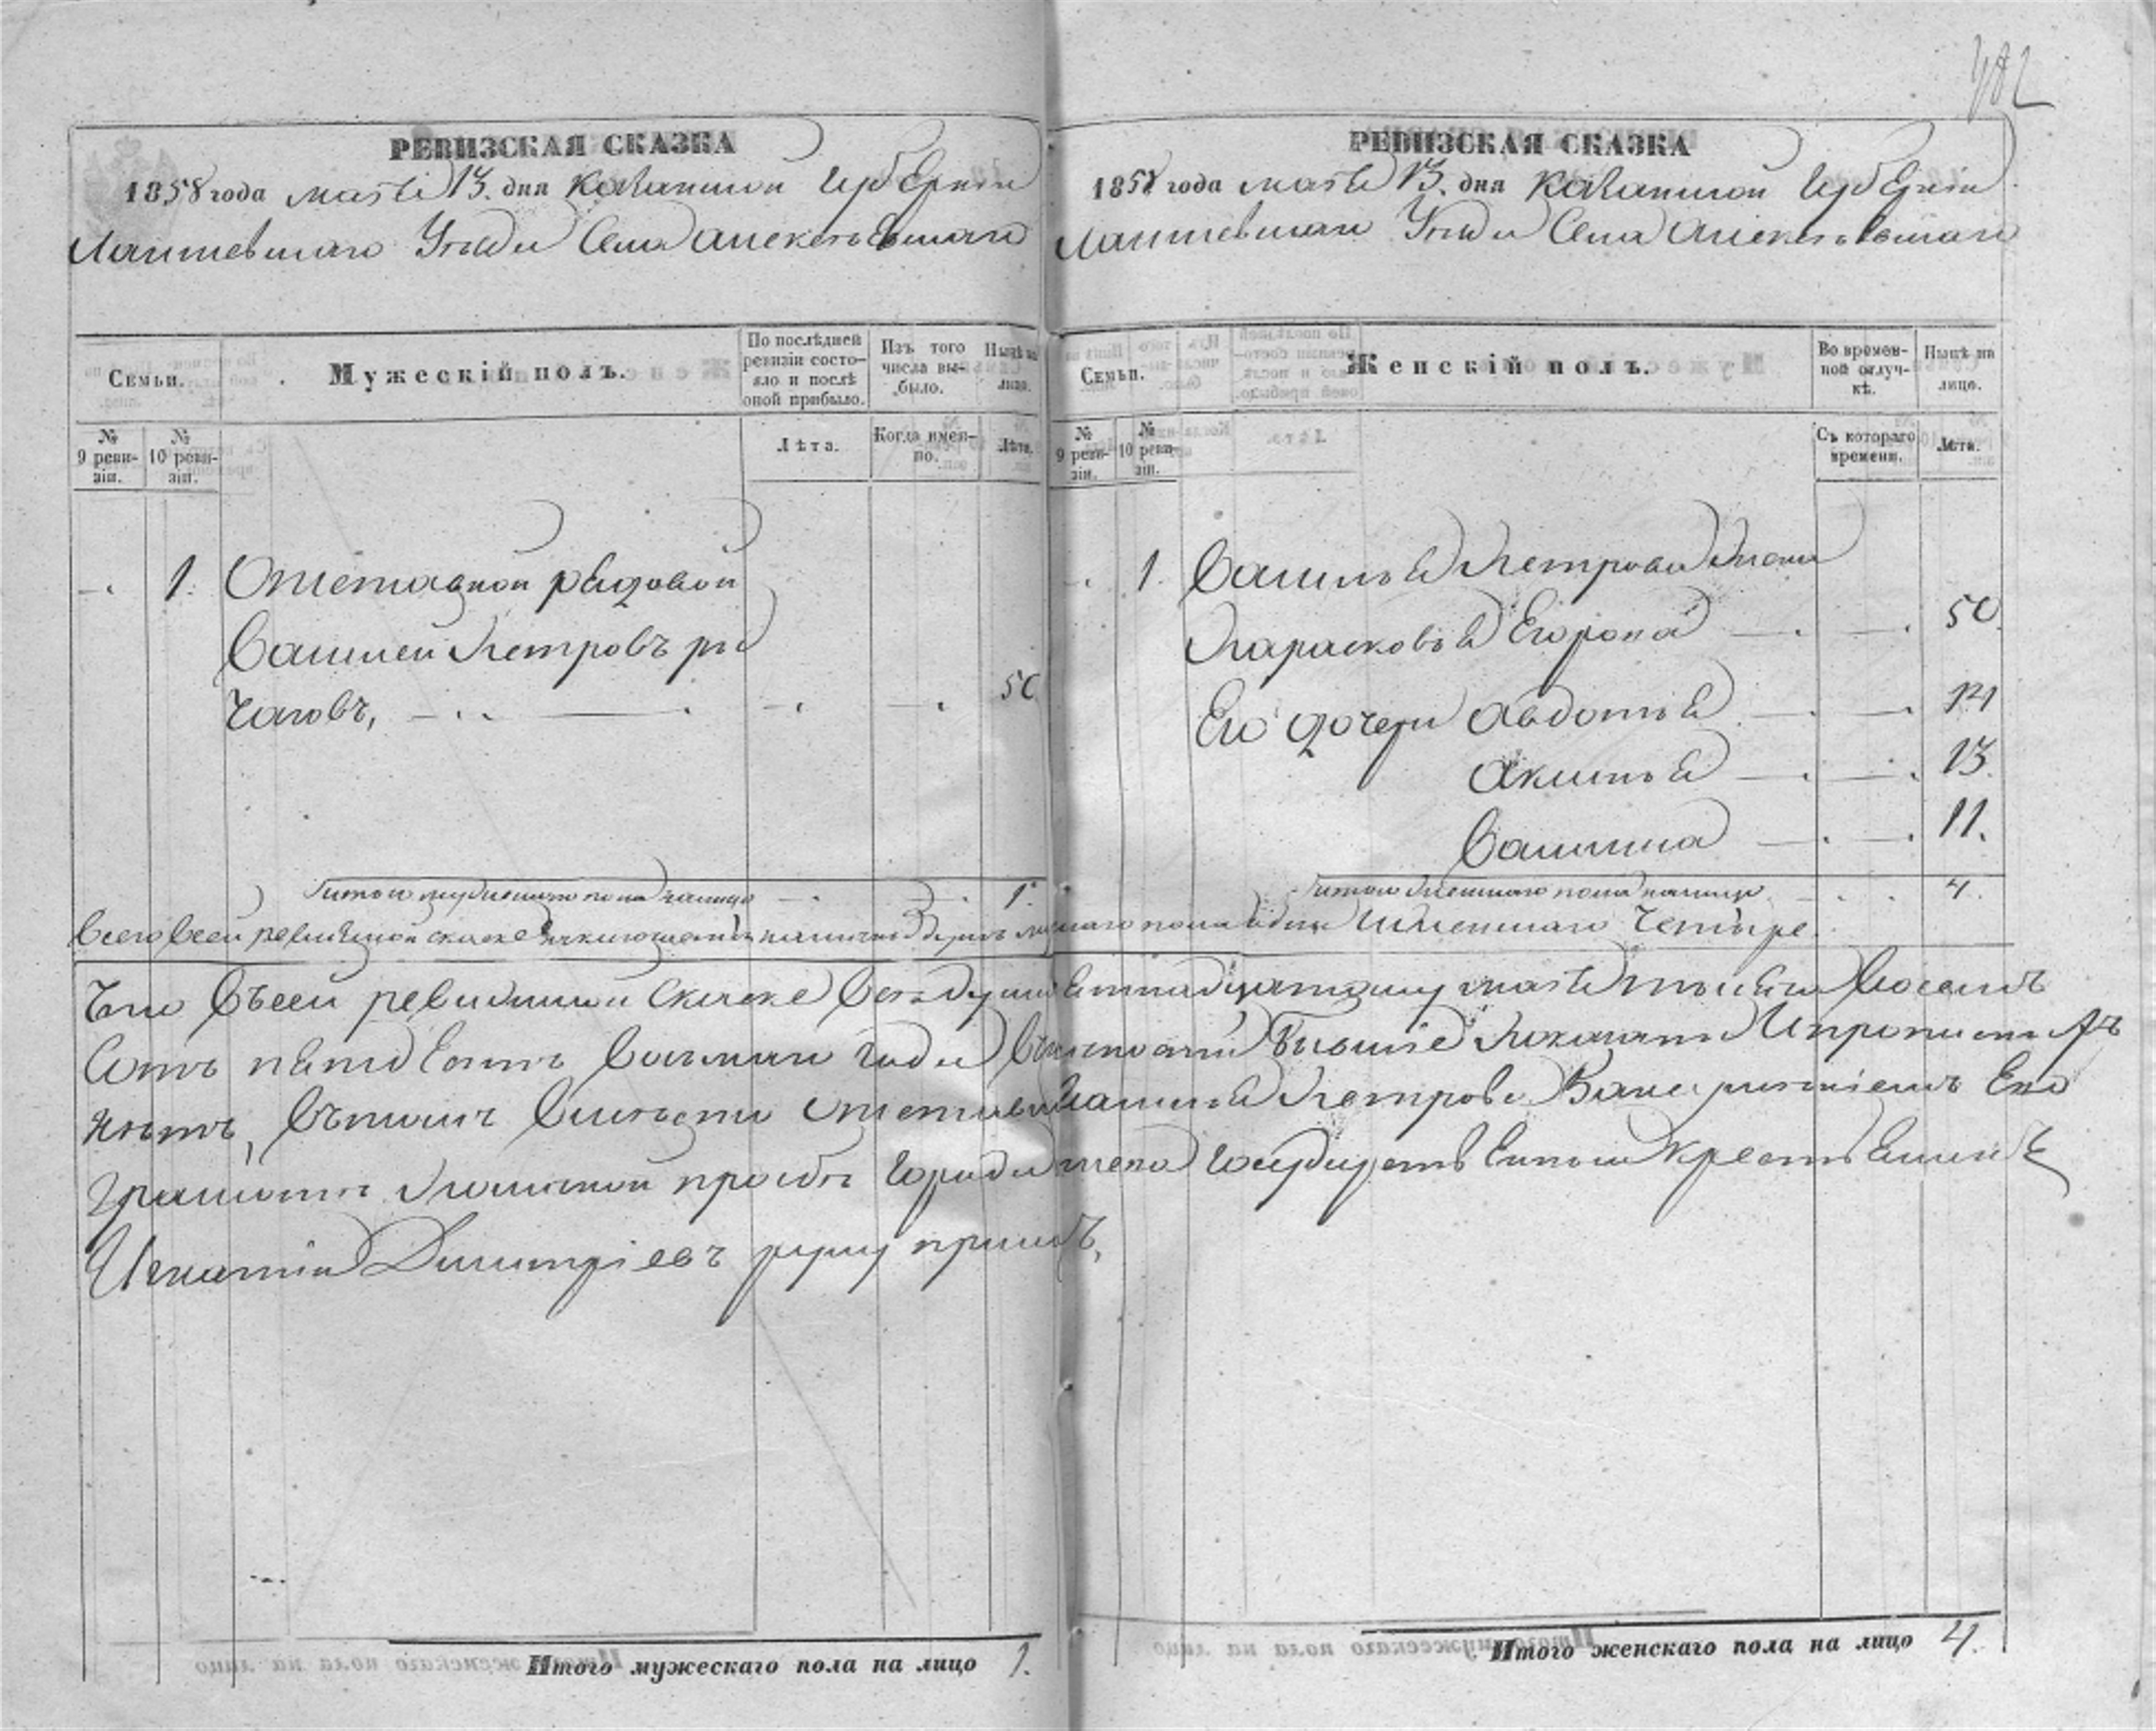 482
РЕВИЗСКАЯ СКАЗКА
1858 года марта 13. дня Казанской Губерніи
Лаишевскаго Уезда Села Алексеевскаго
Семьи.
Мужескій полъ.
По послѣдней ревизіи состояло и послѣ оной прибыло.
Изъ того числа выбыло.
Нынѣ на лицо.
№ 9 ревизіи.
№ 10 ревизіи.
Лѣта.
Когда именно.
Лѣта.
1. Отставной рядовой
Василей Петровъ
50
Итого мужескаго пола налицо 1.
РЕВИЗСКАЯ СКАЗКА
1858 года марта 13. дня Казанской Губерніи
Лаишевскаго Уезда Села Алексеевскаго
Семьи.
Женскій полъ.
Во временной отлучкѣ.
Нынѣ на лицо.
№ 9 ревизіи.
№ 10 ревизіи.
Съ котораго времени.
Лѣта.
1. Василья Петрова жена
Парасковья Егорова 50
Его дочери Авдотья 14
Акилина 13.
Василиса 11.
Итого женскаго пола налицо 4.
Всего въ сей ревизской сказке наличныхъ душъ пола и женскаго четыре.
Что въ сей ревизской сказке марта тысяча восемь
сотъ пятдесятъ осьмаго года бывшіе показаны и прописныхъ
нѣтъ, въ томъ Василья Петрова
просьбе государственной крестьянинъ
Игнатій Димитріевъ руку приложилъ,
Итого мужескаго пола на лицо 1.
Итого женскаго пола на лицо 4.